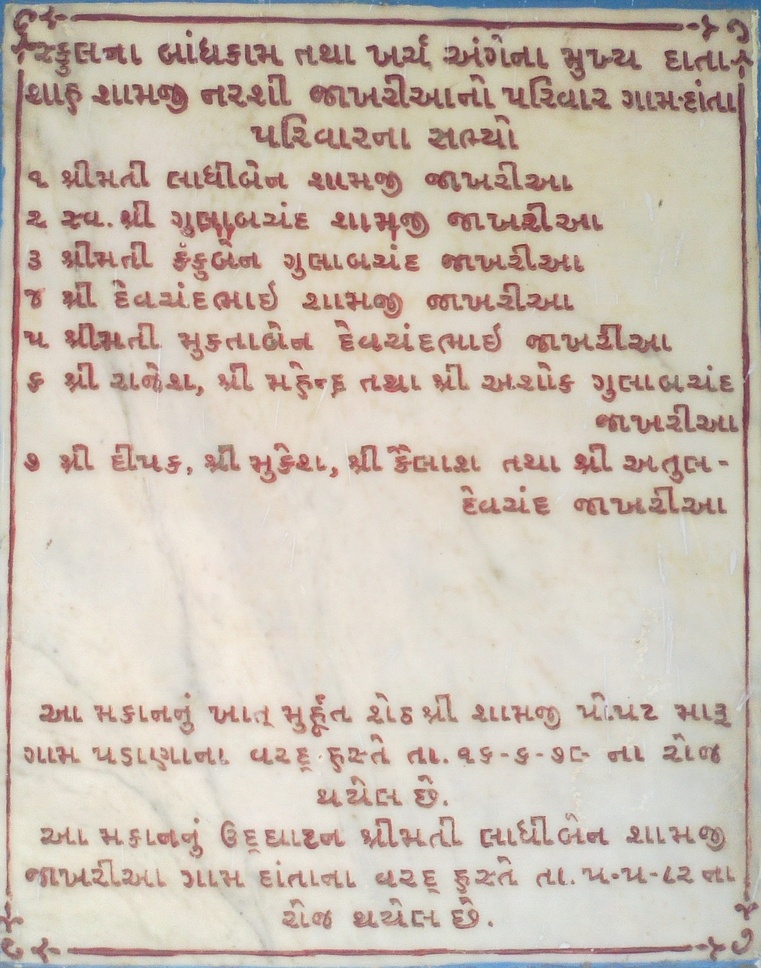 સ્કુલના બાંધકામ તથા ખર્ચ અંગેના મુખ્ય દાતા
શાહ શામજી નરશી જાખરીઆનો પરિવાર ગામ-દાંતા
પરિવારના સભ્યો
૧ શ્રીમતી લાધીબેન શામજી જાખરીઆ
૨ સ્વ. શ્રી ગુલાબચંદ શામજી જાખરીઆ
૩ શ્રીમતી કંકુબેન ગુલાબચંદ જાખરીઆ
૪ શ્રી દેવચંદભાઇ શામજી જાખરીઆ
૫ શ્રીમતી મુક્તાબેન દેવચંદભાઇ જાખરીઆ
૬ શ્રી રાજેશ, શ્રી મહેન્દ્ર તથા શ્રી અશોક ગુલાબચંદ
જાખરીઆ
૭ શ્રી દીપક, શ્રી મુકેશ, શ્રી કૈલાશ તથા શ્રી અતુલ-
દેવચંદ જાખરીઆ
આ મકાનનું ખાત્ મુર્હૂત શેઠ શ્રી શામજી પોપટ મારૂ
ગામ પડાણાના વરદ્ હસ્તે તા. ૧૬-૬-૭૯ ના રોજ
થયેલ છે.
આ મકાનનું ઉદ્‌ઘાટન શ્રીમતી લાધીબેન શામજી
જાખરીઆ ગામ દાંતાના વરદ્ હસ્તે તા. ૫-૫-૮૨ ના
રોજ થયેલ છે.